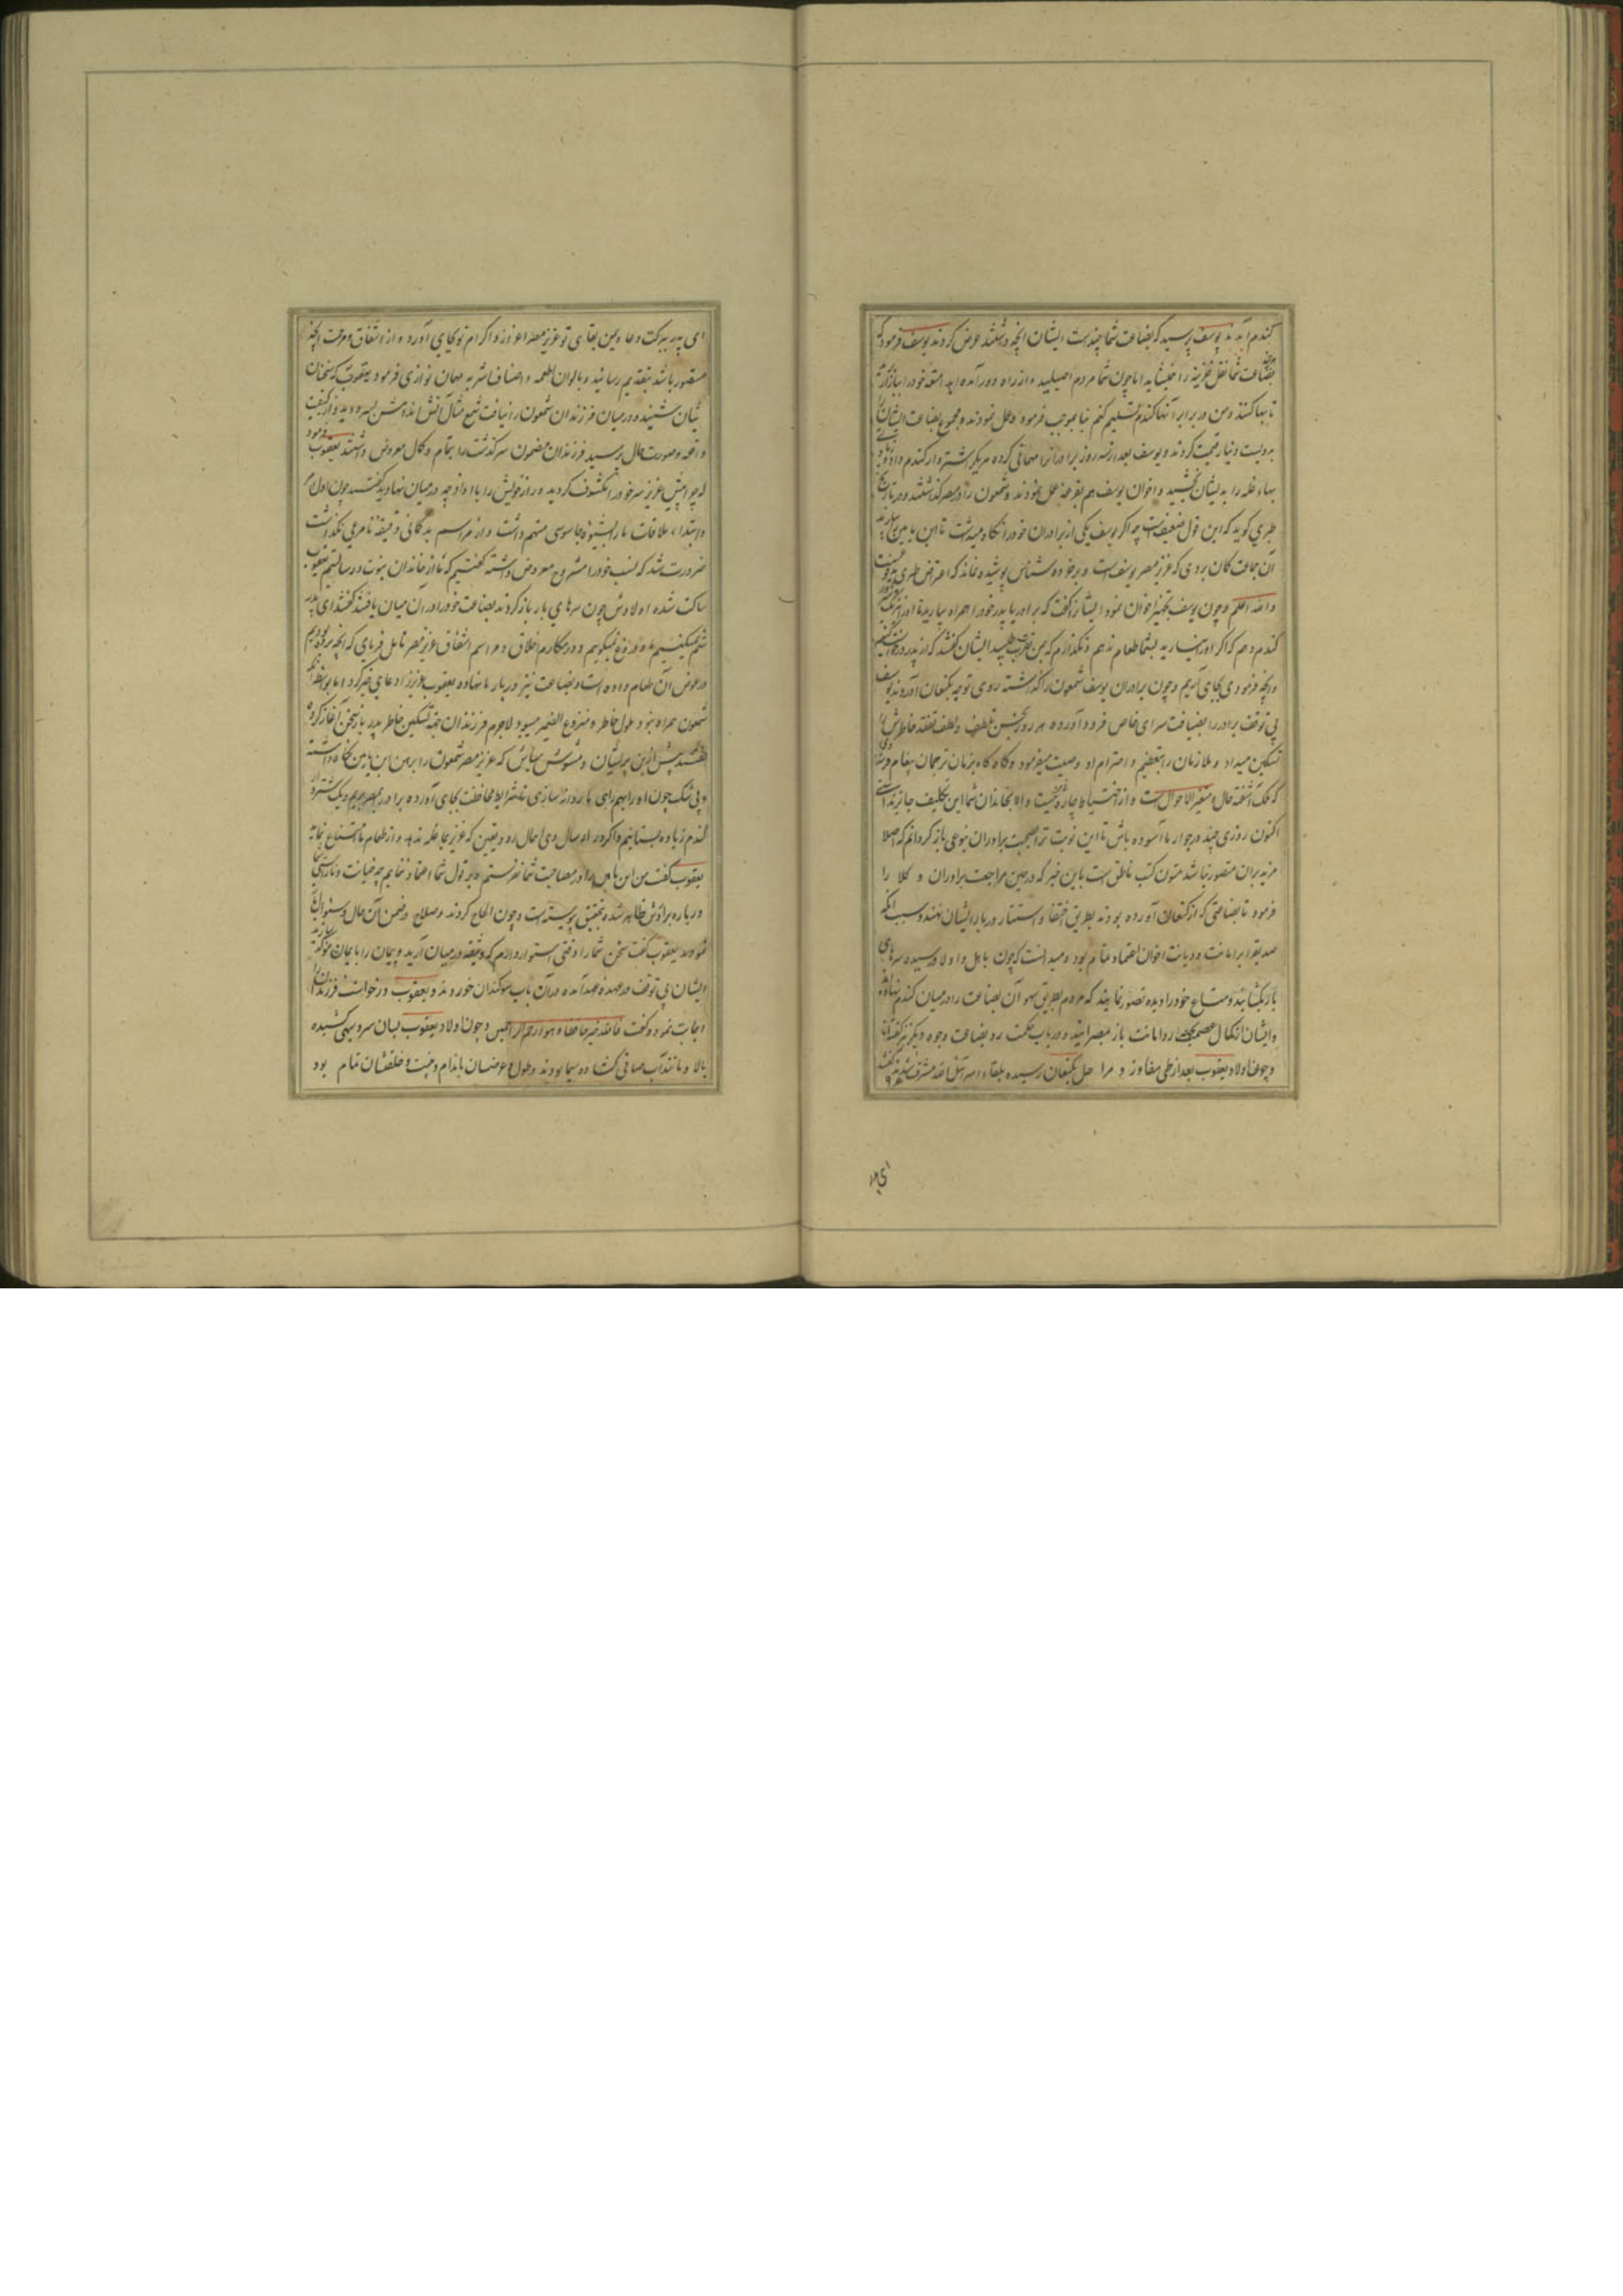 کندم آمدند یوسف پرسید که بضاعت شما چندست ایشان انچه داشتند عرض کردند یوسف فرمود که
بضاعت شما نقل خزینه را نمیشاید اما چون شما مردم اصیلید و از راه دور آمده اید امتعه خود را ببازار
تا بها کنند و من در برابر آنها کندم تسلیم کنم بنا بموجب فرموده عمل نمودند و مجموع بضاعت ایشان را
بدویست دینار قیمت کردند و یوسف بعد از سه روز برادرانرا مهمانی کرده هر یک را شتروار کندم داد و
بهاء غله را بدیشان بخشید و اخوان یوسف هم بقرعه عمل نمودند و شمعون را در مصر گذاشتند و در تاریخ
طبری کوید که این قول ضعیفست چه اکر یوسف یکی از برادران خود را نکاه میداشت تا ابن یامین بیارند
آن جماعت کمان بردی که عزیز مصر یوسف است و بر خرده شناس پوشیده نماند که اعتراض طبری
والله اعلم و چون یوسف تجهیز اخوان نمود ایشانرا گفت که برادر پدر خود را همراه بیارید تا او را نیز یک
کندم دهم که اکر او را نیارید بشما طعام ندهم و نکذارم که بمن تقرب طلبید ایشان گفتند که از پدر درخواست کنیم
و انچه فرمودی بجای آریم و چون برادران یوسف شمعون را گذاشته روی توجه بکنعان آوردند یوسف
بی توقف برادر را بضیافت سرای خاص فرود آورده هر روز بحسن تلطف و لطف تفقد خاطرش را
تسکین میداد و ملازمان را بتعظیم و احترام او وصیت میفرمود و کاه کاه بزبان ترجمان پیغام
که ملک آشفته حال و متغیر الاحوال است و از احتیاط چاره نیست و الا بخاندان شما این تکلیف جایز نداشتی
اکنون روزی چند در جوار ما آسوده باش تا این نوبت ترا بصحبت برادران بنوعی باز کردانم که اصلا
مزید بران متصور نباشد متون کتب ناطق است باین خبر که در حین مراجعت برادران وکلا را
فرمود تا بضاعتی که از کنعان آورده بودند بطریق اختفا و استتار در بار ایشان نهند و سبب آنکه
صدیق را بر امانت و دیانت اخوان اعتماد تمام بود و میدانست که چون باهل و اولاد رسیده سرهای
باز بکشایند و متاع خود را دیده تصور نمایند که مردم بطریق سهو آن بضاعت را در میان کندم نهاده اند
و ایشان از کمال روا امانت باز بمصر آیند و در باب حکمت رد بضاعت وجوه دیکر نیز گفته اند
و چون اولاد یعقوب بعد از طی مفاوز و مراحل بکنعان رسیده بلقاء اسرائیل الله مشرف شدند گفتند
ای پد
ای پدر ببرکت دعا و یمن بقای تو عزیز مصر اعزاز و اکرام تو بجای آورد و از اشفاق و مرحمت انچه
متصور باشد بتقدیم رسانید و بالوان اطعمه و اصناف اشربه مهمان نوازی فرمود یعقوب که سخنان
شان شنید و در میان فرزندان شمعون را نیافت شمع مثال آتش
واقعه و صورت حال پرسید فرزندان مضمون سرگذشت را بتمام و کمال معروض داشتند یعقوب فرمود
که چرا پیش عزیز سر خود را مکشوف کردید و راز خویش را با او از چه در میان نهادید گفتند چون اول
و ابتداء ملاقات ما را بشیوه جاسوسی متهم داشت و از مراسم بدگمانی دقیقه نامرعی نکذاشت
ضرورت شد که نسب خود را مشروح معروض داشته گفتیم که ما از خاندان نبوت و رسالتیم یعقوب
ساکت شده اولادش چون سرهای بار باز کردند بضاعت خود را در آن میان یافتند گفتند ای پدر
ستم نمیکنیم و دروغ نمیگوییم و در مکارم اخلاق و مراسم اشفاق عزیز مصر تامل فرمای که انچه برده بودیم
در عوض آن طعام داده است و بضاعت نیز در بار ما نهاده یعقوب عزیز را دعای خیر کرد اما بواسطه آنکه
شمعون همراه نبود ملول خاطر و متوزع الضمیر میبود لاجرم فرزندان جهة تسکین خاطر پدر باز سخن آغاز کرده
گفتند پیش ازین پریشان و مشوش مباش که عزیز مصر شمعون را برهن ابن یامین نگاه داشته
و بی شک چون او را بهمراهی ما روانه سازی تا شرایط محافظت بجای آورده برادر بمصر بریم و یک شتروار
کندم زیاده بستانیم و اگر در ارسال وی اهمال رود یقین که عزیز بما غله ندهد و از طعام ما امتناع نماید
یعقوب گفت من ابن یامین را در مصاحبت شما نفرستم و بر قول شما اعتماد ننمایم چه خیانت و ناراستی شما
درباره برادرش ظاهر شده بتحقیق پیوسته است و چون الحاح کردند و صلاح در ضمن آن حال و سئوال
نمودند یعقوب گفت سخن شما را وقتی استوار دارم که وثیقه در میان آرید و پیمان را بایمان مؤکد سازید
ایشان بی توقف در عهده عهد آمده در آن باب سوگندان خوردند و یعقوب درخواست فرزندان را
اجابت نمود و گفت فالله خیر حافظا و هو ارحم الراحمین و چون اولاد یعقوب بسان سرو سهی کشیده
بالا و مانند آب صافی گشاده سیما بودند و طول و عرضشان باندام و جثت و خلقتشان تمام بود